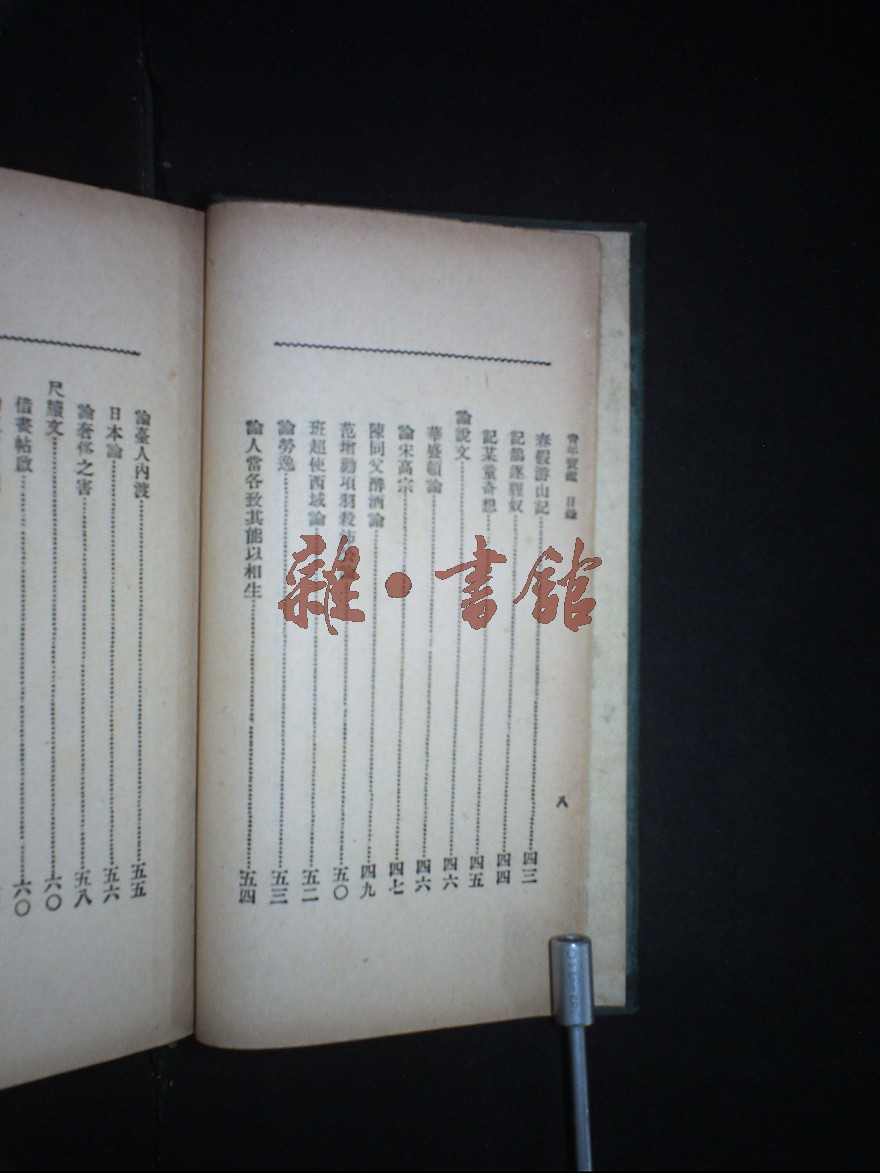 青年寶鑑 目錄
八
春假游山記 四三
記鵲逐貍奴 四四
記某童奇想 四五
論說文 四六
華盛頓論 四六
論宋高宗 四七
陳同父醉酒論 四九
范增勸項羽殺沛 五〇
班超使西域論 五二
論勞逸 五三
論人當各致其能以相生 五四
論臺人內渡 五五
日本論 五六
論奢侈之害 五八
尺牘文 六〇
借書帖啟 六〇
雜·書館